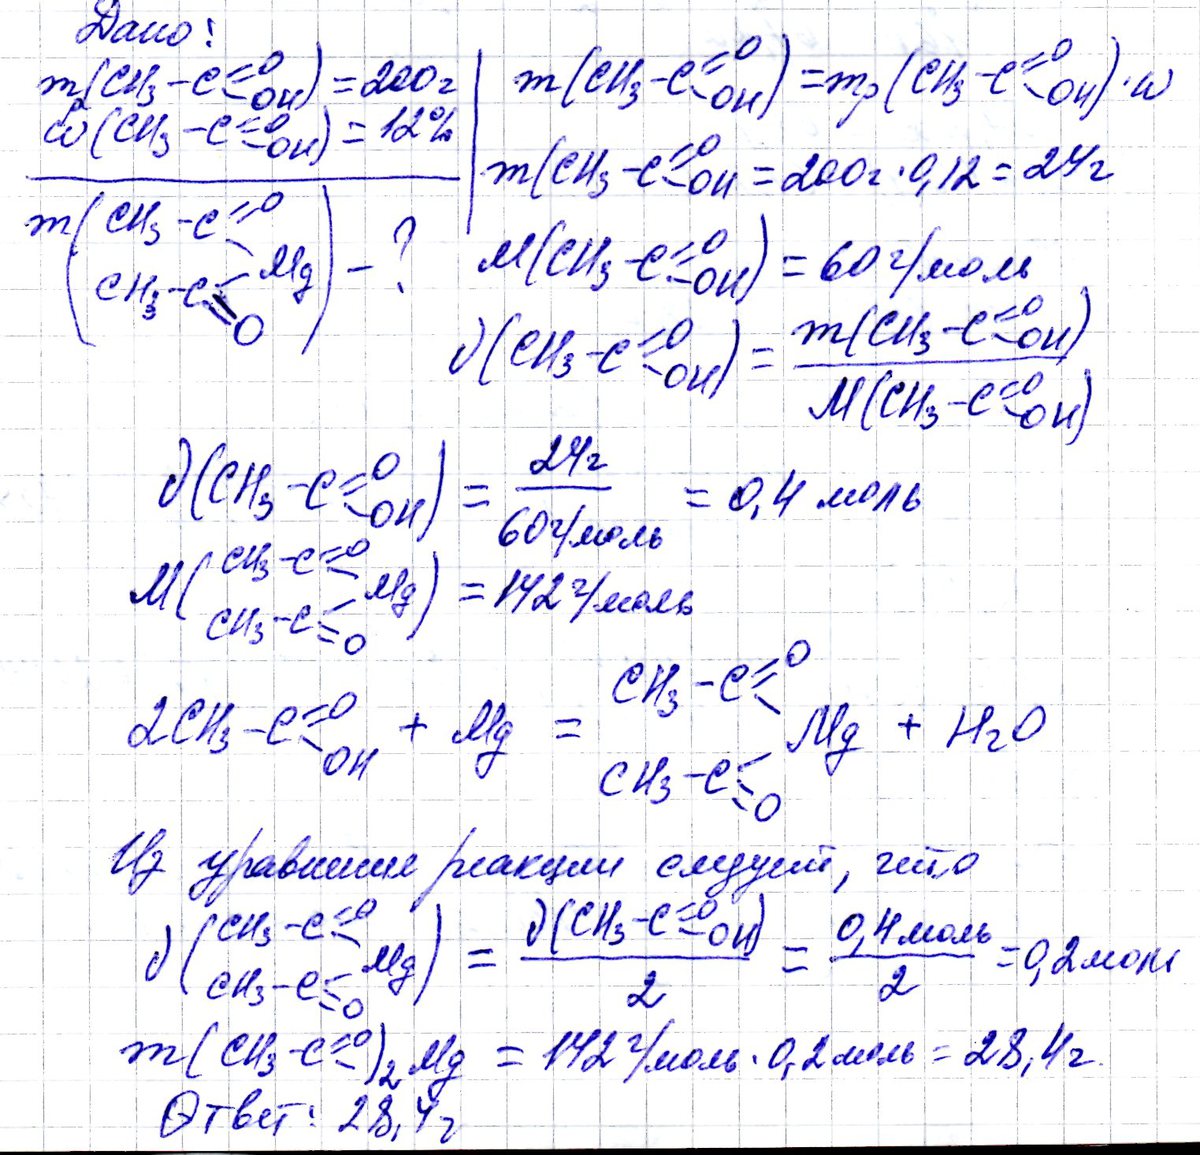 Дано:
m(CH₃-C=O-OH)=200г
ω(CH₃-C=O-OH)=12%
m(CH₃-C=O CH₃-C=O Mg) - ?
m(CH₃-C=O-OH)=mр(CH₃-C=O-OH)·ω
m(CH₃-C=O-OH = 200г·0,12 = 24г
M(CH₃-C=O-OH) = 60 г/моль
ν(CH₃-C=O-OH) = m(CH₃-C=O-OH) / M(CH₃-C=O-OH)
ν(CH₃-C=O-OH) = 24г / 60г/моль = 0,4 моль
M(CH₃-C=O CH₃-C=O Mg) = 142 г/моль
2CH₃-C=O-OH + Mg = CH₃-C=O CH₃-C=O Mg + H₂O
Из уравнения реакции следует, что
ν(CH₃-C=O CH₃-C=O Mg) = ν(CH₃-C=O-OH) / 2 = 0,4 моль / 2 = 0,2 моль
m(CH₃-C=O-)₂Mg = 142 г/моль · 0,2 моль = 28,4г.
Ответ: 28,4г